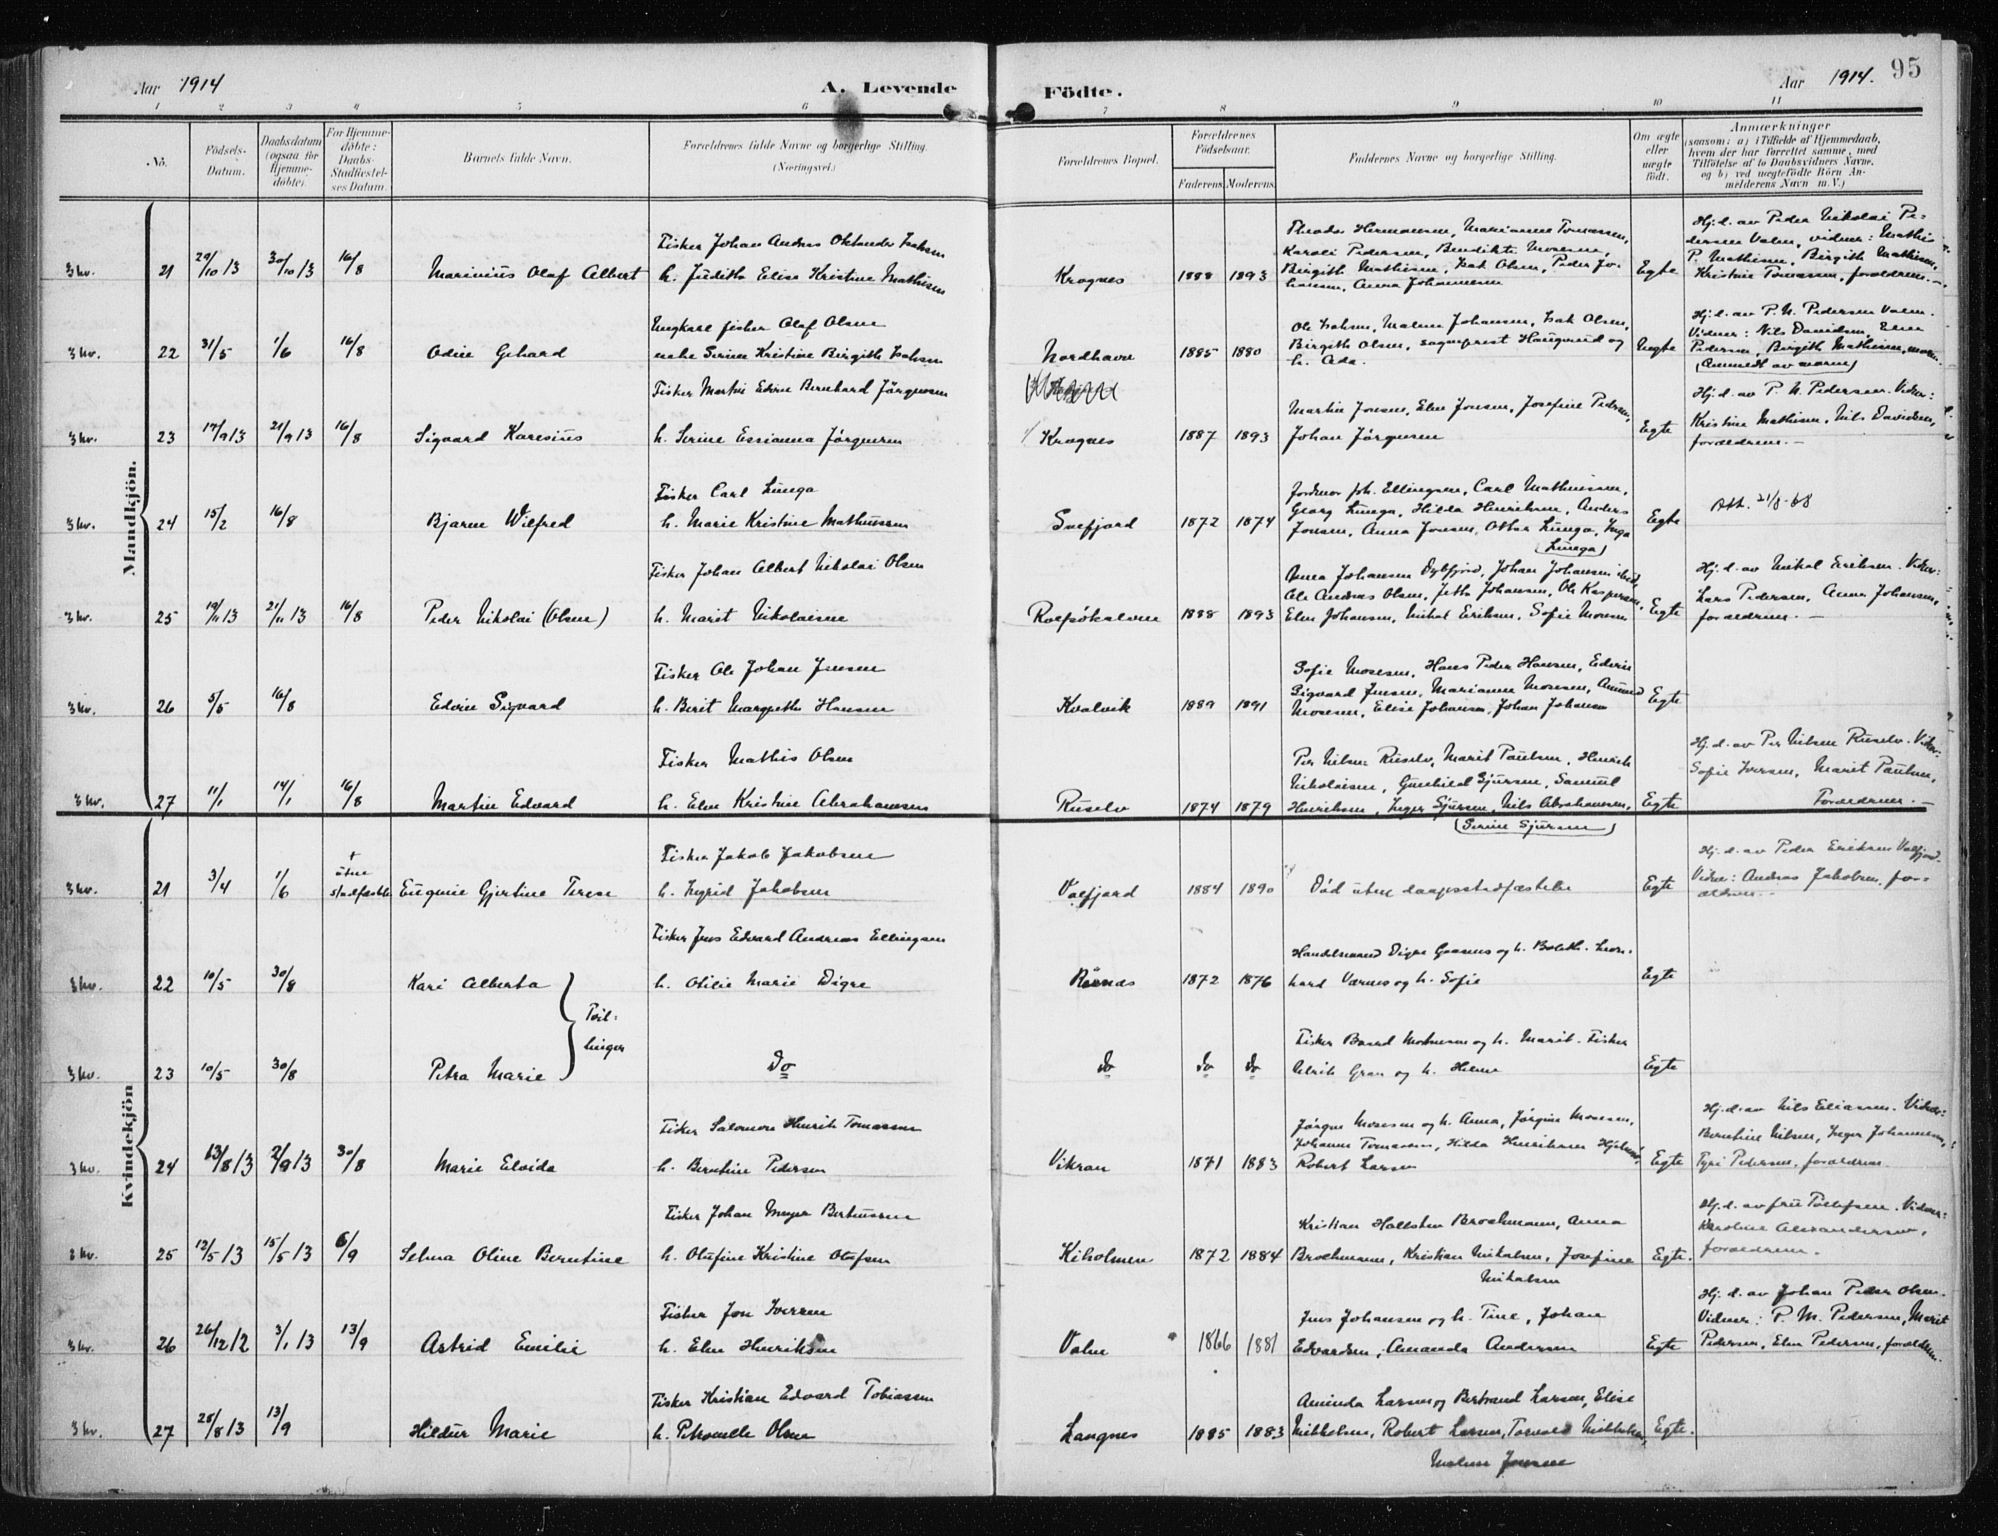 Aar 1914
A. Levende
Födte.
Aar 1914.
95
1 2 3 4 5 6 7 8 9 10 11
No.
Födsels-
Datum.
Daabsdatum
(ogsaa for
Hjemme-
döbte).
For Hjemme-
döbte:
Daabs-
Stadfæstel-
ses Datum.
Barnets fulde Navn.
Forældrenes fulde Navne og borgerlige Stilling.
(Næringsvei.)
Forældrenes Bopæl.
Forældrenes
Födselsaar.
Faderens. Moderens.
Faddernes Navne og borgerlige Stilling.
Om ægte
eller
uægte
födt.
Anmærkninger
(saasom: a) i Tilfælde af Hjemmedaab,
hvem der har forrettet samme, med
Tilföielse af to Daabsvidners Navne,
og b) ved uægtefödte Börn An-
melderens Navn m.V.)
Mandkjön.
3 kv. 21 29/10 13 30/10 13 16/8 Marinius Olaf Albert
Fisker Johan Andras
h. Judithe Elise Kristine Mathisen
Krognes 1888 1893
Hermansen, Marianne Tomassen,
Karoli Pedersen, Bendikte Mosesen,
Birgith Mathisen, Isak Olsen, Peder Jo-
hansen, Anna Johannesen
Egte
Hj. d. av Peder Nikolai Pe-
dersen Valen, vidner: Mathis
P. Mathisen, Birgith Mathisen,
Kristine Tomassen, forældrene.
3 kv. 22 31/5 1/6 16/8 Odin Gehard
Ungkarl fisker Olaf Olsen
enke Serine Kristine Birgith Isaksen
Nordhavn 1885 1880
Ole Isaksen, Malene Johansen, Isak Olsen,
Birgith Olsen, sogneprest Haugerud og
h. Ada.
Uegte
Hj. d. av P. N. Pedersen Valen.
Vidner: Nils Davidsen, Elen
Pedersen, Birgith Mathisen, moren.
(Anmeldt av moren)
3 kv. 23 17/9 13 21/9 13 16/8 Sigvard Karesius
Fisker Martin Edvin Bernhard Jörgensen
h. Serine Essianna Jörgensen
Krognes 1887 1893
Martin Jensen, Elen Jensen, Josefine Pedersen,
Johan Jörgensen
Egte
Hj. d. av P. N. Pedersen. Vidner:
Kristine Mathisen, Nils Davidsen,
forældrene.
3 kv. 24 15/2 16/8 Bjarne Wilfred
Fisker Carl Lunga
h. Marie Kristine Mathussen
Snefjord 1872 1874
Jordmor Joh. Ellingsen, Carl Mathussen,
Georg Lunga, Hilda Henriksen, Anders
Jensen, Anna Jensen, Otthar Lunga, Inga
(Lunga)
Egte
Att. 21/8-68
3 kv. 25 19/11 13 21/11 13 16/8 Peder Nikolai (Olsen)
Fisker Johan Albert Nikolai Olsen
h. Marit Nikolaisen
Rolfsökalven 1888 1893
Anna Johansen Dybfjord, Johan Johansen
Ole Andras Olsen, Jetta Johansen, Ole Kaspersen,
Elen Johansen, Mikal Eriksen, Sofie Mosesen
Egte
Hj. d. av Mikal Eriksen. Vidner:
Lars Pedersen, Anna Johansen,
forældrene.
3 kv. 26 5/5 16/8 Edvin Sigvard
Fisker Ole Johan Jensen
h. Berit Margrethe Hansen
Kvalvik 1889 1891
Sofie Mosesen, Hans Peder Hansen, Edvin
Sigvard Jensen, Marianne Mosesen, Amund
Mosesen, Elise Johansen, Johan Johansen
Egte
3 kv. 27 11/1 14/1 16/8 Martin Edvard
Fisker Mathis Olsen
h. Elen Kristine Abrahamsen
Russelv 1874 1879
Per Nilsen Russelv, Marit Paulsen, Henrik
Nikolaisen, Gunhild Sjursen, Samuel
Henriksen, Inger Sjursen, Nils Abrahamsen,
(Serine Sjursen)
Egte
Hj. d. av Per Nilsen Russelv. Vidner:
Sofie Iversen, Marit Paulsen,
Forældrene.
Kvindekjön
3 kv. 21 3/4 1/6 + uten stadfæstelse Eugenie Gjertine Terese
Fisker Jakob Jakobsen
h. Ingrid Jakobsen
1884 1890
Död uten daapsstadfæstelse
Egte
Hj. d. av Peder Eriksen
Vidner: Andras Jakobsen, for-
ældrene.
3 kv. 22 10/5 30/8 Kari Alberta
Tvil-
linger
Fisker Jens Edvard Andreas Ellingsen
h. Otilie Marie Digre
1872 1876
Handelsmand Digre Gaasnes og h. Boleth. Leon-
hard Værnes og h. Sofie
Egte
3 kv. 23 10/5 30/8 Petra Marie
Do
do do do
Fisker Baard og h. Marit. Fisker
Ulrik Gran og h. Helene
Egte
3 kv. 24 13/8 13 2/9 13 30/8 Marie Elvida
Fisker Salomon Henrik Tomassen
h. Berntine Pedersen
Vikran 1871 1883
Jörgen Mosesen og h. Anna, Jörgine Mosesen,
Johanne Tomassen, Hilda Henriksen
Robert Larsen
Egte
Hj. d. av Nils Eliassen. Vidner:
Berntine Nilsen, Inger Johannesen,
Pedersen, forældrene.
3 kv. 25 12/5 13 15/5 13 6/9 Selma Oline Berntine
Fisker Johan Meyer Berntussen
h. Olufine Kristine Olufsen
Kiholmen 1872 1884
Kristian Hallstén Brochmann, Anna
Brochmann, Kristian Mikalsen, Josefine
Mikalsen
Egte.
Hj. d. av fru Tollefsen. Vidner:
Karoline Alexandersen,
forældrene.
3 kv. 26 26/12 12 3/1 13 13/9 Astrid Emilie
Fisker Jon Iversen
h. Elen Henriksen
Valen 1866 1881
Jens Johansen og h. Tine, Johan
Edvardsen, Amanda Andersen
Egte
Hj. d. av Johan Peder Olsen.
Vidner: P. M. Pedersen, Marit
Pedersen, Elen Pedersen, forældrene.
3 kv. 27 25/8 13 13/9 Hildur Marie
Fisker Kristian Edvard Tobiassen
h. Petronelle Olsen
Langnes 1885 1883
Aminda Larsen og Bertrand Larsen, Elise
Mikkelsen, Robert Larsen, Torvald Mikkelsen,
Malene Jensen
Egte.